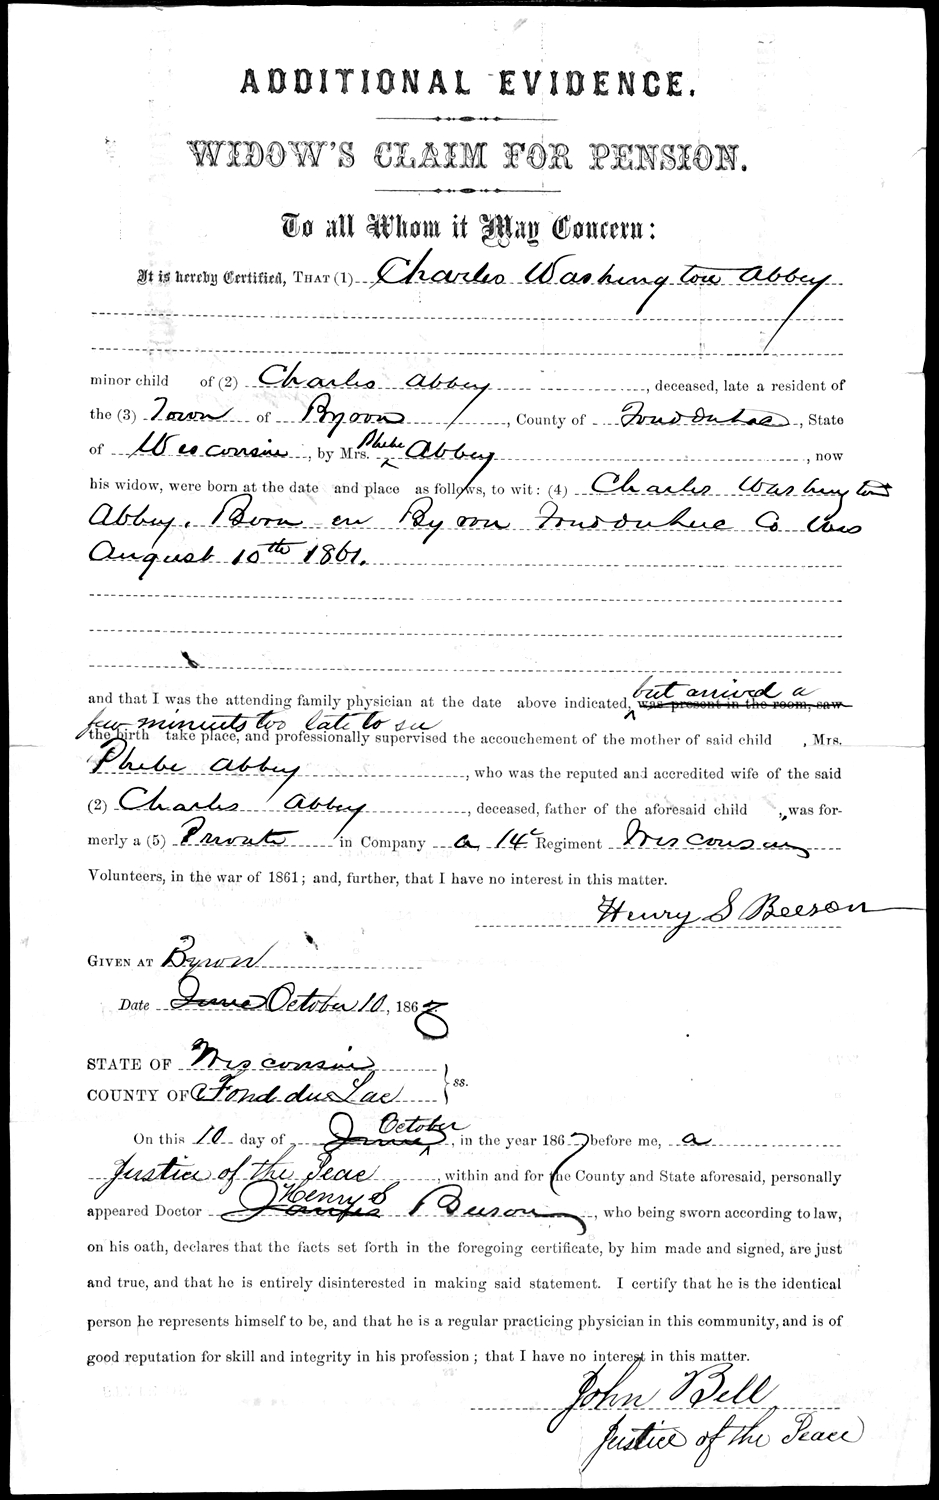 ADDITIONAL EVIDENCE.
WIDOW'S CLAIM FOR PENSION.
To all Whom it May Concern:
It is hereby Certified, THAT (1) Charles Washington Abbey
minor child of (2) Charles Abbey, deceased, late a resident of
the (3) Town of Byron, County of Fonddulac, State
of Wisconsin, by Mrs. Phebe Abbey, now
his widow, were born at the date and place as follows, to wit: (4) Charles Washington
Abbey. Born in Byron Fonddulac Co Wis
August 10th 1861.
and that I was the attending family physician at the date above indicated, but arrived a
was present in the room, saw
few minuets too late to see
the birth take place, and professionally supervised the accouchement of the mother of said child , Mrs.
Phebe Abbey, who was the reputed and accredited wife of the said
(2) Charles Abbey, deceased, father of the aforesaid child , was for-
merly a (5) Private in Company A, 14th Regiment Wisconsin
Volunteers, in the war of 1861; and, further, that I have no interest in this matter.
Henry S Beeson
GIVEN AT Byron
Date June October 10, 1867
STATE OF Wisconsin
COUNTY OF Fond du Lac } ss.
On this 10 day of June October, in the year 1867 before me, a
Justice of the Peac, within and for the County and State aforesaid, personally
appeared Doctor James Henry S Beeson, who being sworn according to law,
on his oath, declares that the facts set forth in the foregoing certificate, by him made and signed, are just
and true, and that he is entirely disinterested in making said statement. I certify that he is the identical
person he represents himself to be, and that he is a regular practicing physician in this community, and is of
good reputation for skill and integrity in his profession; that I have no interest in this matter.
John Bell
Justice of the Peace